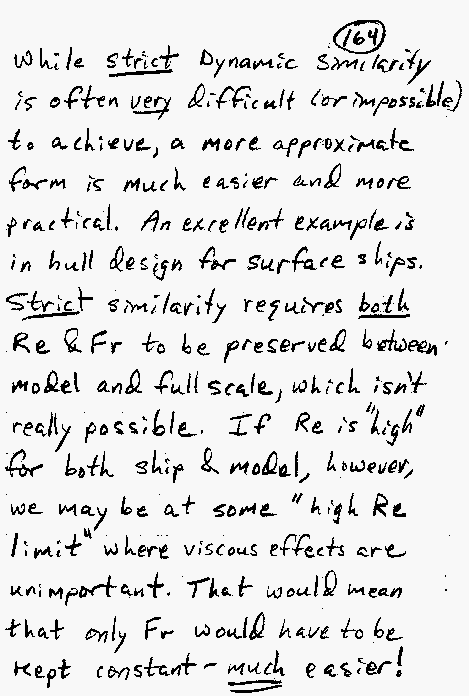 164
While strict Dynamic Similarity
is often very difficult (or impossible)
to achieve, a more approximate
form is much easier and more
practical. An excellent example is
in hull design for surface ships.
Strict similarity requires both
Re & Fr to be preserved between
model and full scale, which isn't
really possible. If Re is "high"
for both ship & model, however,
we may be at some "high Re
limit" where viscous effects are
unimportant. That would mean
that only Fr would have to be
kept constant - much easier!